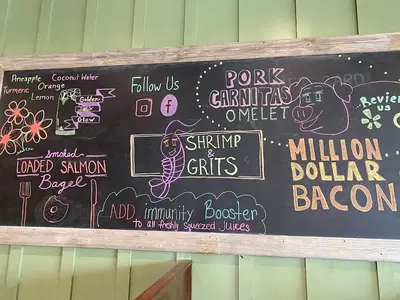 Aneapple Coconut Water
Turmeric Orange
Lemon
Golden
Glow
Smoked
LOADED SALMON
Bagel
Follow Us
f
SHRIMP
&
GRITS
ADD immunity Booster
to all freshly squeezed Juices
PORK
CARNITAS
OMELET
Review
us
MILLION
DOLLAR
BACON